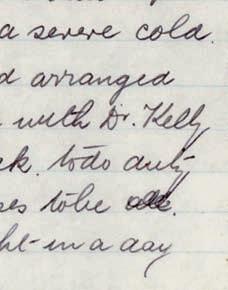 a severe cold.
d arranged
with Dr. Kelly
ek. to do duty
ses to be
ht in a day